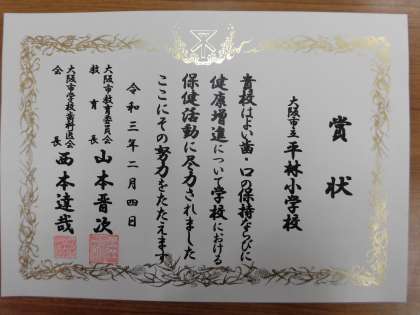 賞状
大阪市立平林小学校
貴校はよい歯・口の保持ならびに
健康増進について学校における
保健活動に尽力されました
ここにその努力をたたえます
令和三年二月四日
大阪市教育委員会
教育長 山本晋次
大阪市学校歯科医会
会長 西本達哉